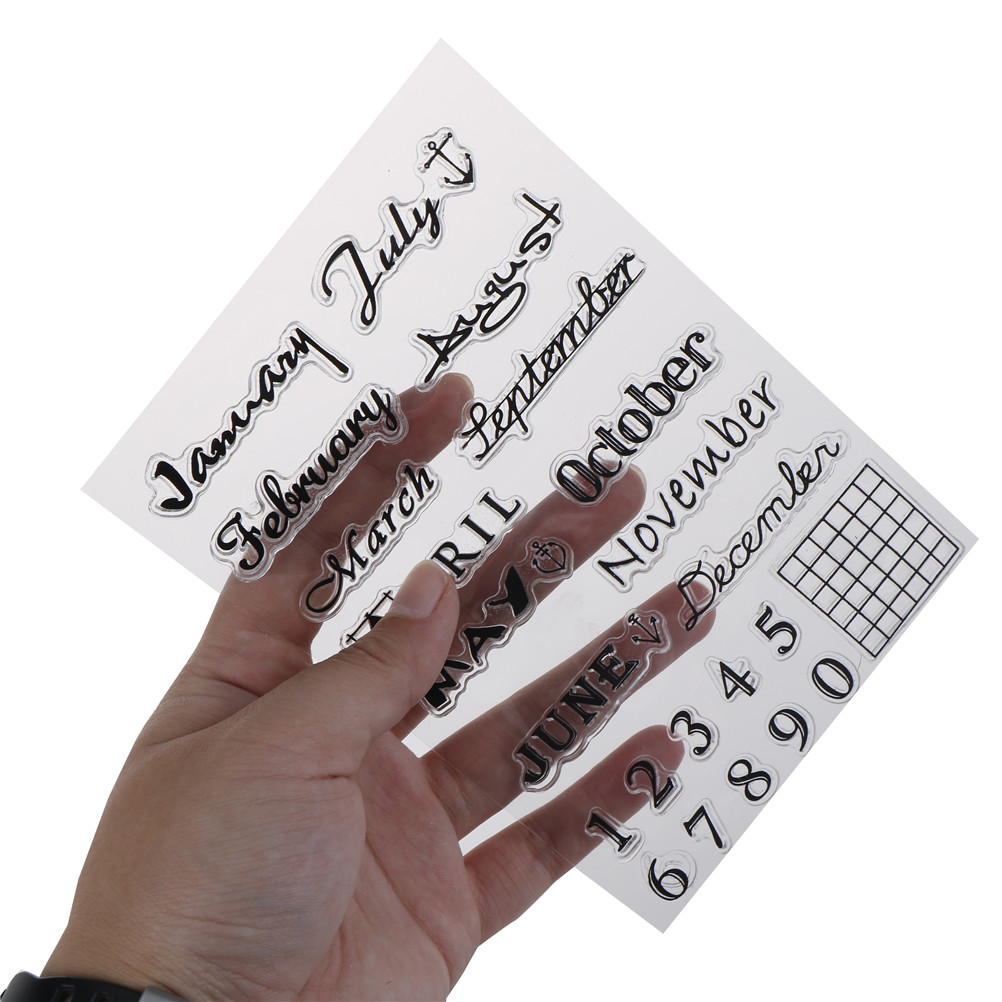 January
February
March
RIL
MAY
JUNE
July
August
September
October
November
December
1 2 3 4 5
6 7 8 9 0